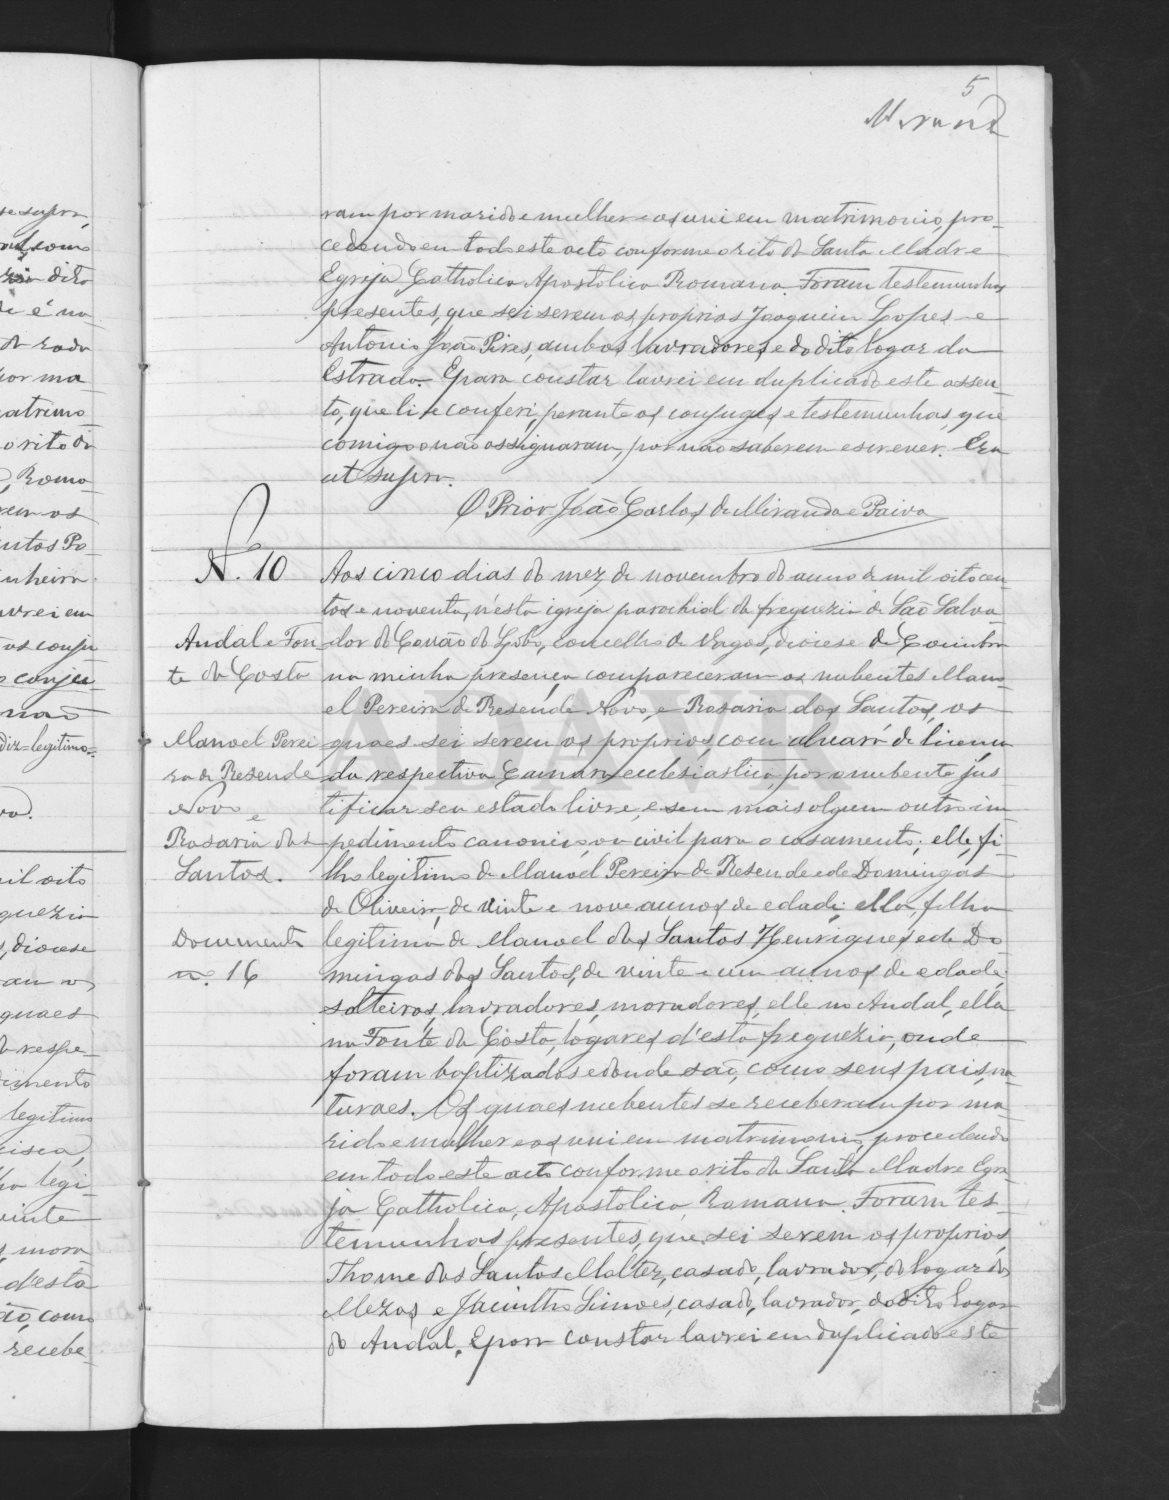 5
Miranda
ram por marido e mulher e os uni em matrimonio, pro-
cedendo em todo este acto conforme o rito da Santa Madre
Egreja Catholica Apostolica Romana. Foram testemunhas
presentes, que sei serem os proprios Joaquim Lopes e
Antonio João Pires, ambos lavradores e do dito logar da
Estrada. E para constar lavrei em duplicado este assen-
to, que li e conferi, perante os conjuges e testemunhas, que
comigo não assignaram, por não saberem escrever. Era
ut supra.
O Prior João Carlos de Miranda e Paiva
N. 10
Andal e Fon
te da Costa
Manoel Perei
ra de Resende
Novo e
Rosaria dos
Santos.
Documento
nº 16
Aos cinco dias do mez de novembro do anno de mil oitocen
tos e noventa, n'esta igreja parochial da freguezia de São Salva
dor do Covão do Lobo, concelho de Vagos, diocese de Coimbra
na minha presença compareceram os nubentes Mano-
el Pereira de Resende Novo, e Rosaria dos Santos, os
quaes sei serem os proprios, com alvará de licença
da respectiva Camara ecclesiastica, por o nubente jus
tificar seu estado livre, e sem mais algum outro im
pedimento canonico, ou civil para o casamento; elle, fi-
lho legitimo de Manoel Pereira de Resende e de Domingas
de Oliveira, de vinte e nove annos de edade; ella, filha
legitima de Manoel dos Santos Henriques, e de Do-
mingas dos Santos, de vinte e um annos de edade;
solteiros, lavradores, moradores, elle no Andal, ella
na Fonte da Costa, logares d'esta freguezia, onde
foram baptizados e donde são, como seus pais, na-
turaes. Os quaes nubentes se receberam por ma-
rido e mulher e os uni em matrimonio, procedendo
em todo este acto conforme o rito da Santa Madre Egre
ja Catholica, Apostolica, Romana. Foram tes-
temunhas presentes, que sei serem os proprios,
Thome dos Santos Malta, casado, lavrador, do logar das
Mezas e Jacintho Simões, casado, lavrador, do dito logar
do Andal. E para constar lavrei em duplicado este
ADAVR